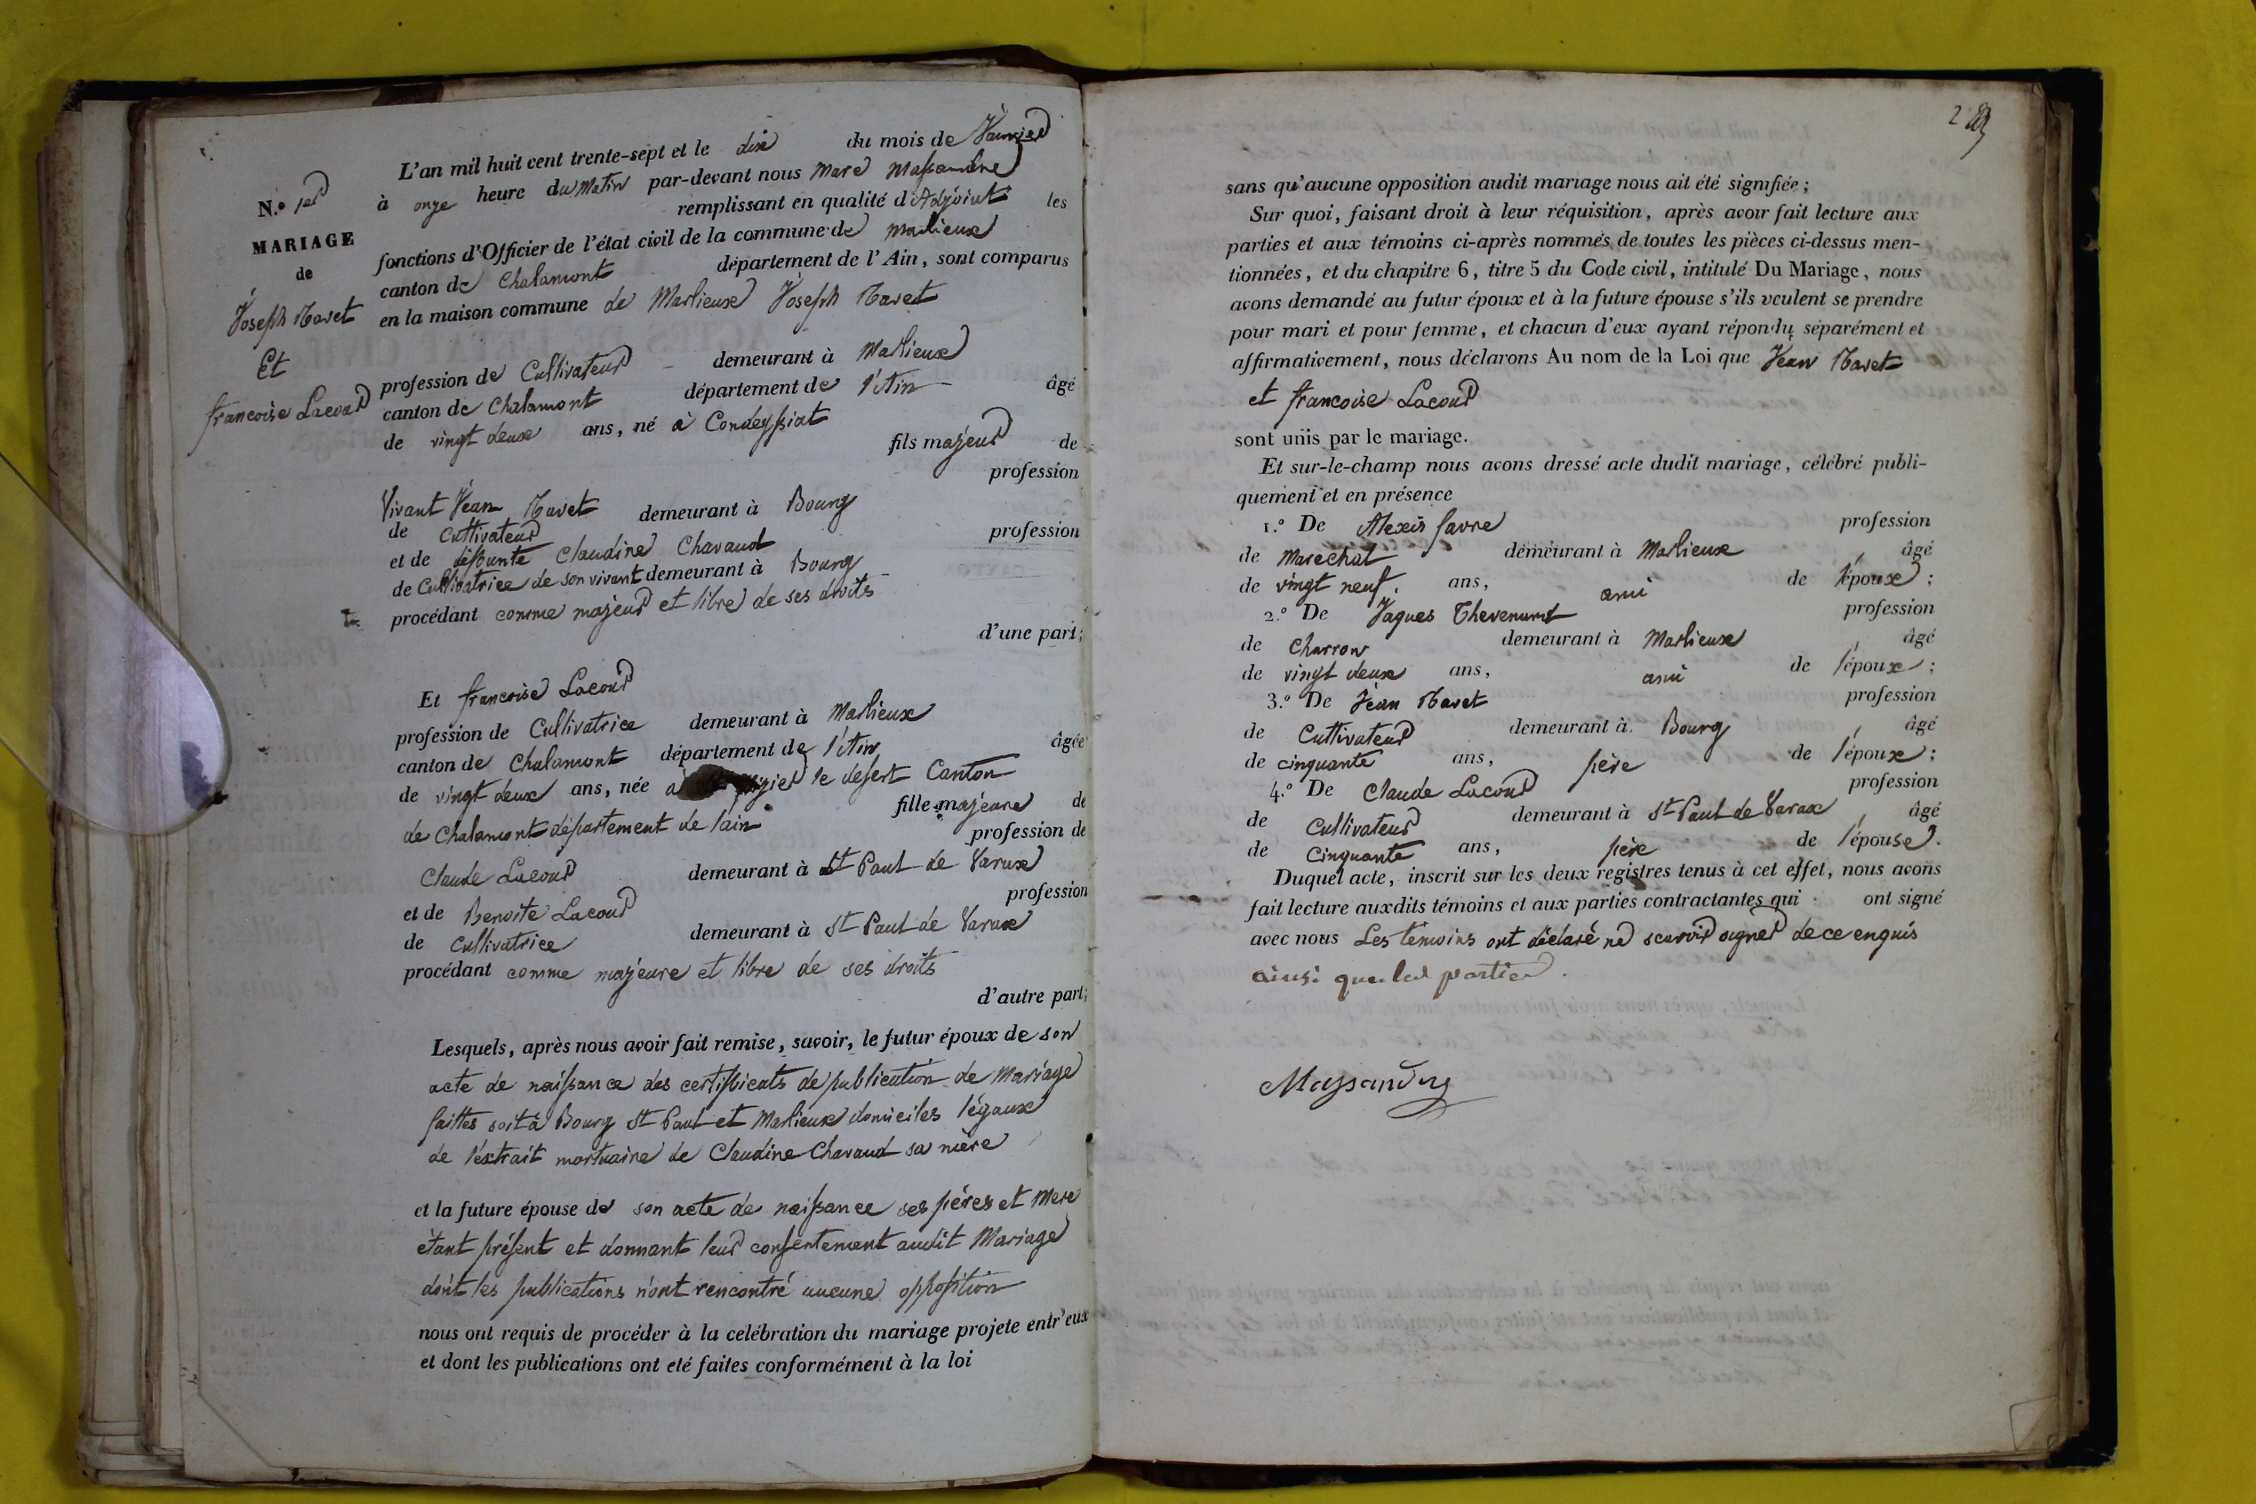 L'an mil huit cent trente-sept et le dix du mois de Janvier
à onze heure du Matin par-devant nous Marc Massandre
remplissant en qualité d'Adjoint les
fonctions d'Officier de l'état civil de la commune de Marlieux
canton de Chalamont département de l'Ain, sont comparus
en la maison commune de Marlieux Joseph Ravet
profession de Cultivateur demeurant à Marlieux
canton de Chalamont département de l'Ain âgé
de vingt deux ans, né à Condeyssiat
fils majeur de
profession
Vivant Jean Ravet demeurant à Bourg
de Cultivateur
et de deffunte Claudine Chavaud profession
de Cultivatrice de son vivant demeurant à Bourg
procédant comme majeur et libre de ses droits
d'une part;
Et francoise Lacour
profession de Cultivatrice demeurant à Marlieux
canton de Chalamont département de l'Ain âgée
de vingt deux ans, née à le desert Canton
de Chalamont département de lain fille majeure de
profession de
Claude Lacour demeurant à St Paul de Varax
et de Benoite Lacour profession
de Cultivatrice demeurant à St Paul de Varax
procédant comme majeure et libre de ses droits
d'autre part;
Lesquels, après nous avoir fait remise, savoir, le futur époux de son
acte de naissance des certifficats de publication de Mariage
faittes soit à Bourg St Paul et Marlieux domiciles légaux
de l'éxtrait mortuaire de Claudine Chavaud sa mère
et la future épouse de son acte de naissance ses péres et Mere
étant présent et donnant leur consentement audit Mariage
dont les publications n'ont rencontré aucune opposition
nous ont requis de procéder à la celébration du mariage projete entr'eux
et dont les publications ont eté faites conformément à la loi
N.º 1er
MARIAGE
de
Joseph Ravet
Et
francoise Lacour
sans qu'aucune opposition audit mariage nous ait été signifiée;
Sur quoi, faisant droit à leur réquisition, après avoir fait lecture aux
parties et aux témoins ci-après nommés de toutes les pièces ci-dessus men-
tionnées, et du chapitre 6, titre 5 du Code civil, intitulé Du Mariage, nous
avons demandé au futur époux et à la future épouse s'ils veulent se prendre
pour mari et pour femme, et chacun d'eux ayant répondu séparément et
affirmativement, nous déclarons Au nom de la Loi que Jean Ravet
et francoise Lacour
sont unis par le mariage.
Et sur-le-champ nous avons dressé acte dudit mariage, célébré publi-
quement et en présence
1.º De Alexis favre profession
de Marechal demeurant à Marlieux âgé
de vingt neuf ans, ami de l'époux;
2.º De Jaques profession
de Charron demeurant à Marlieux âgé
de vingt deux ans, ami de l'époux;
3.º De Jean Ravet profession
de Cultivateur demeurant à Bourg âgé
de cinquante ans, père de l'époux;
4.º De Claude Lacour profession
de Cultivateur demeurant à St Paul de Varax âgé
de Cinquante ans, père de l'épouse.
Duquel acte, inscrit sur les deux registres tenus à cet effet, nous avons
fait lecture auxdits témoins et aux parties contractantes qui ont signé
avec nous Les témoins ont déclaré ne scavoir signer de ce enquis
ainsi que les parties.
Massandre